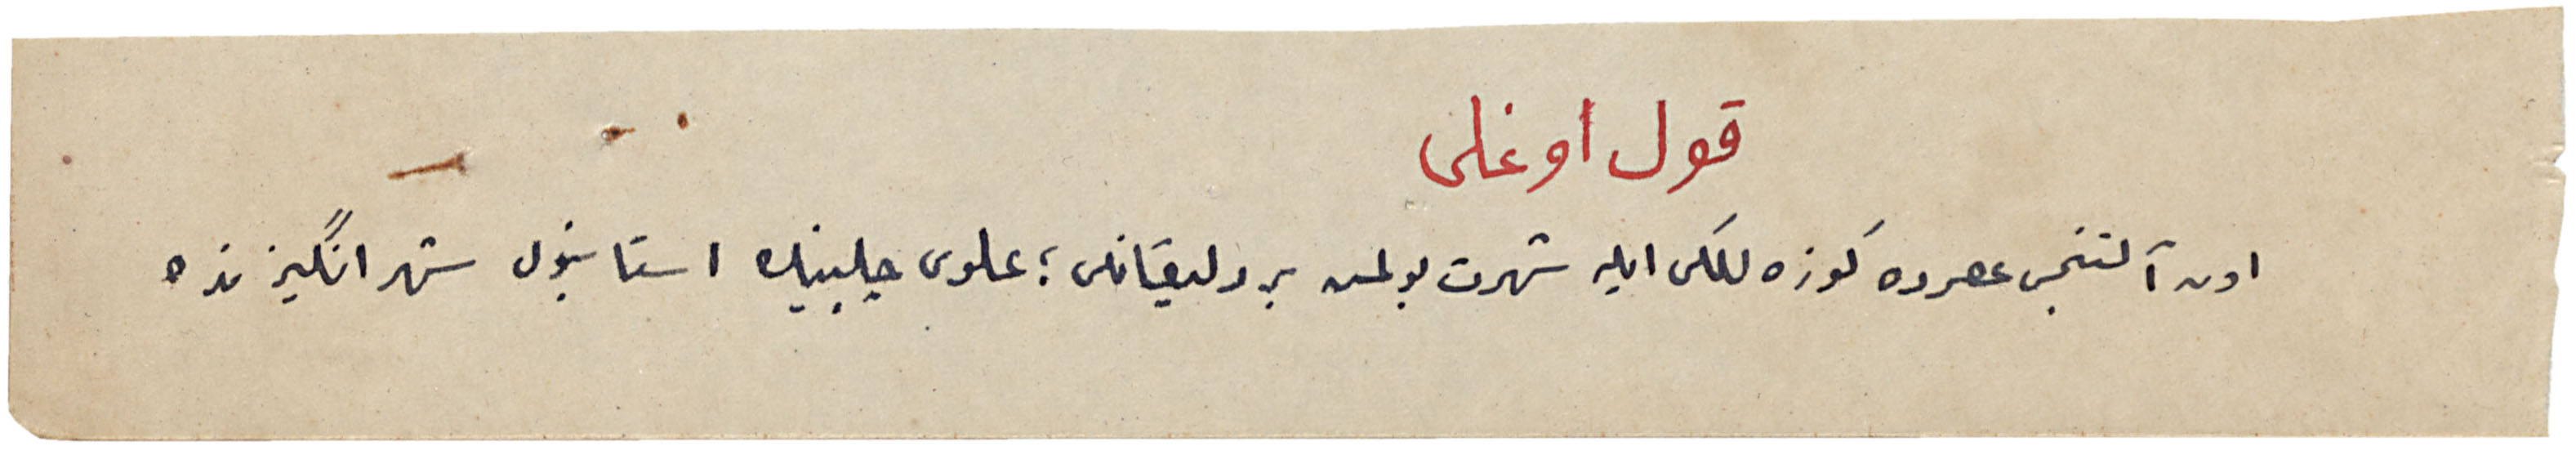 قول اوغلی
اون آلتنجی عصرده كوزه للكی ایله شهرت بولمش بر دلیقانلی ؛ علوی چلبینك استانبول شهر انگیزنده